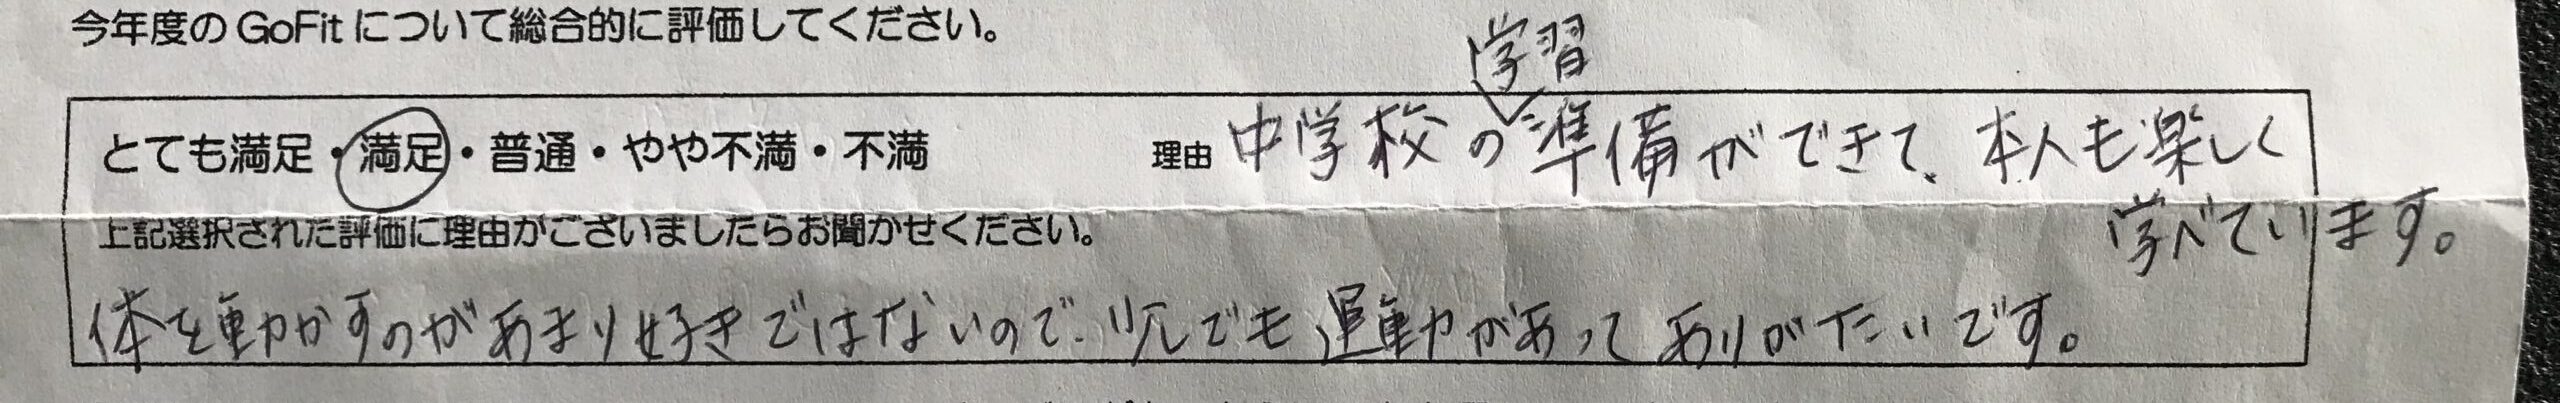 今年度の GoFit について総合的に評価してください。
とても満足・満足・普通・やや不満・不満
理由 中学校の学習準備ができて、本人も楽しく
学べています。
上記選択された評価に理由がございましたらお聞かせください。
体を動かすのがあまり好きではないので、少しでも運動があってありがたいです。